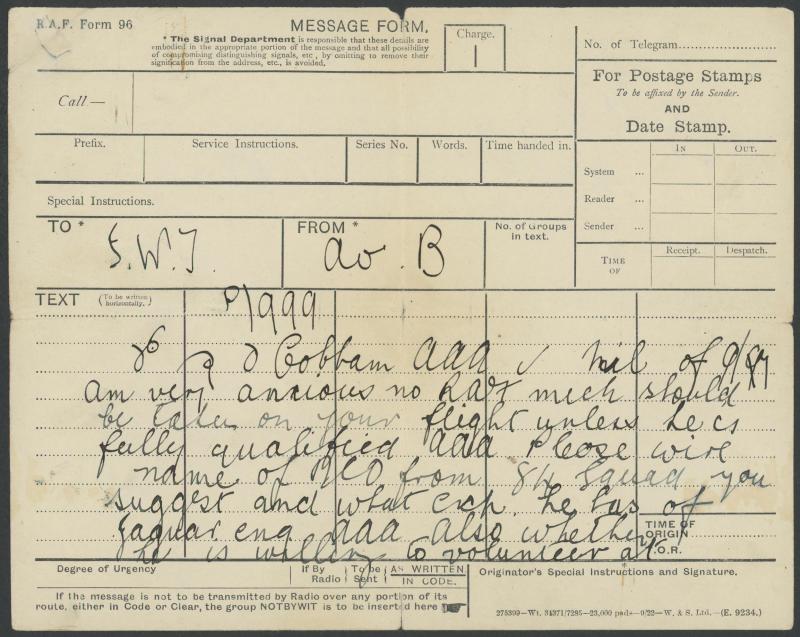 R.A.F. Form 96
MESSAGE FORM.
* The Signal Department is responsible that these details are
embodied in the appropriate portion of the message and that all possibility
of compromising distinguishing signals, etc., by omitting to remove their
signification from the address, etc., is avoided.
Charge.
No. of Telegram
For Postage Stamps
To be affixed by the Sender.
AND
Date Stamp.
Call—
Prefix.
Service Instructions.
Series No.
Words.
Time handed in.
In
Out.
System ...
Reader ...
Sender ...
Special Instructions.
TO *
FROM *
No. of Groups
in text.
Receipt.
Despatch.
TIME
OF
av. B
TEXT (To be written horizontally.)
P/999
Cobham aaa mil of
am very anxious no RAF mech should
be taken on your flight unless he is
fully qualified aaa Please wire
name of NCO from 84 Squad you
suggest and what exp. he has of
Jaguar eng aaa also whether
he is willing to volunteer at
TIME OF
ORIGIN
T.O.R.
Degree of Urgency
If By
Radio
To be
Sent
AS WRITTEN
IN CODE.
Originator's Special Instructions and Signature.
If the message is not to be transmitted by Radio over any portion of its
route, either in Code or Clear, the group NOTBYWIT is to be inserted here
275399—Wt. 34371/7285—23,000 pads—9/22—W. & S. Ltd.—(E. 9234.)